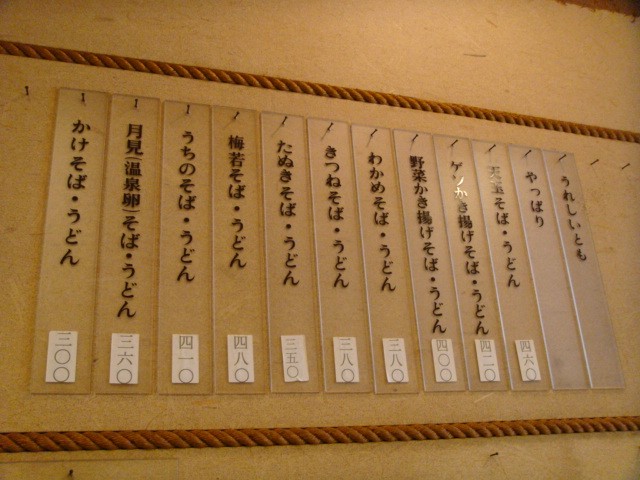 うれしいとも
やっぱり
天玉そば・うどん
四六〇
ゲソかき揚げそば・うどん
四二〇
野菜かき揚げそば・うどん
四〇〇
わかめそば・うどん
三八〇
きつねそば・うどん
三八〇
たぬきそば・うどん
三五〇
梅若そば・うどん
四八〇
うちのそば・うどん
四一〇
月見(温泉卵)そば・うどん
三六〇
かけそば・うどん
三〇〇